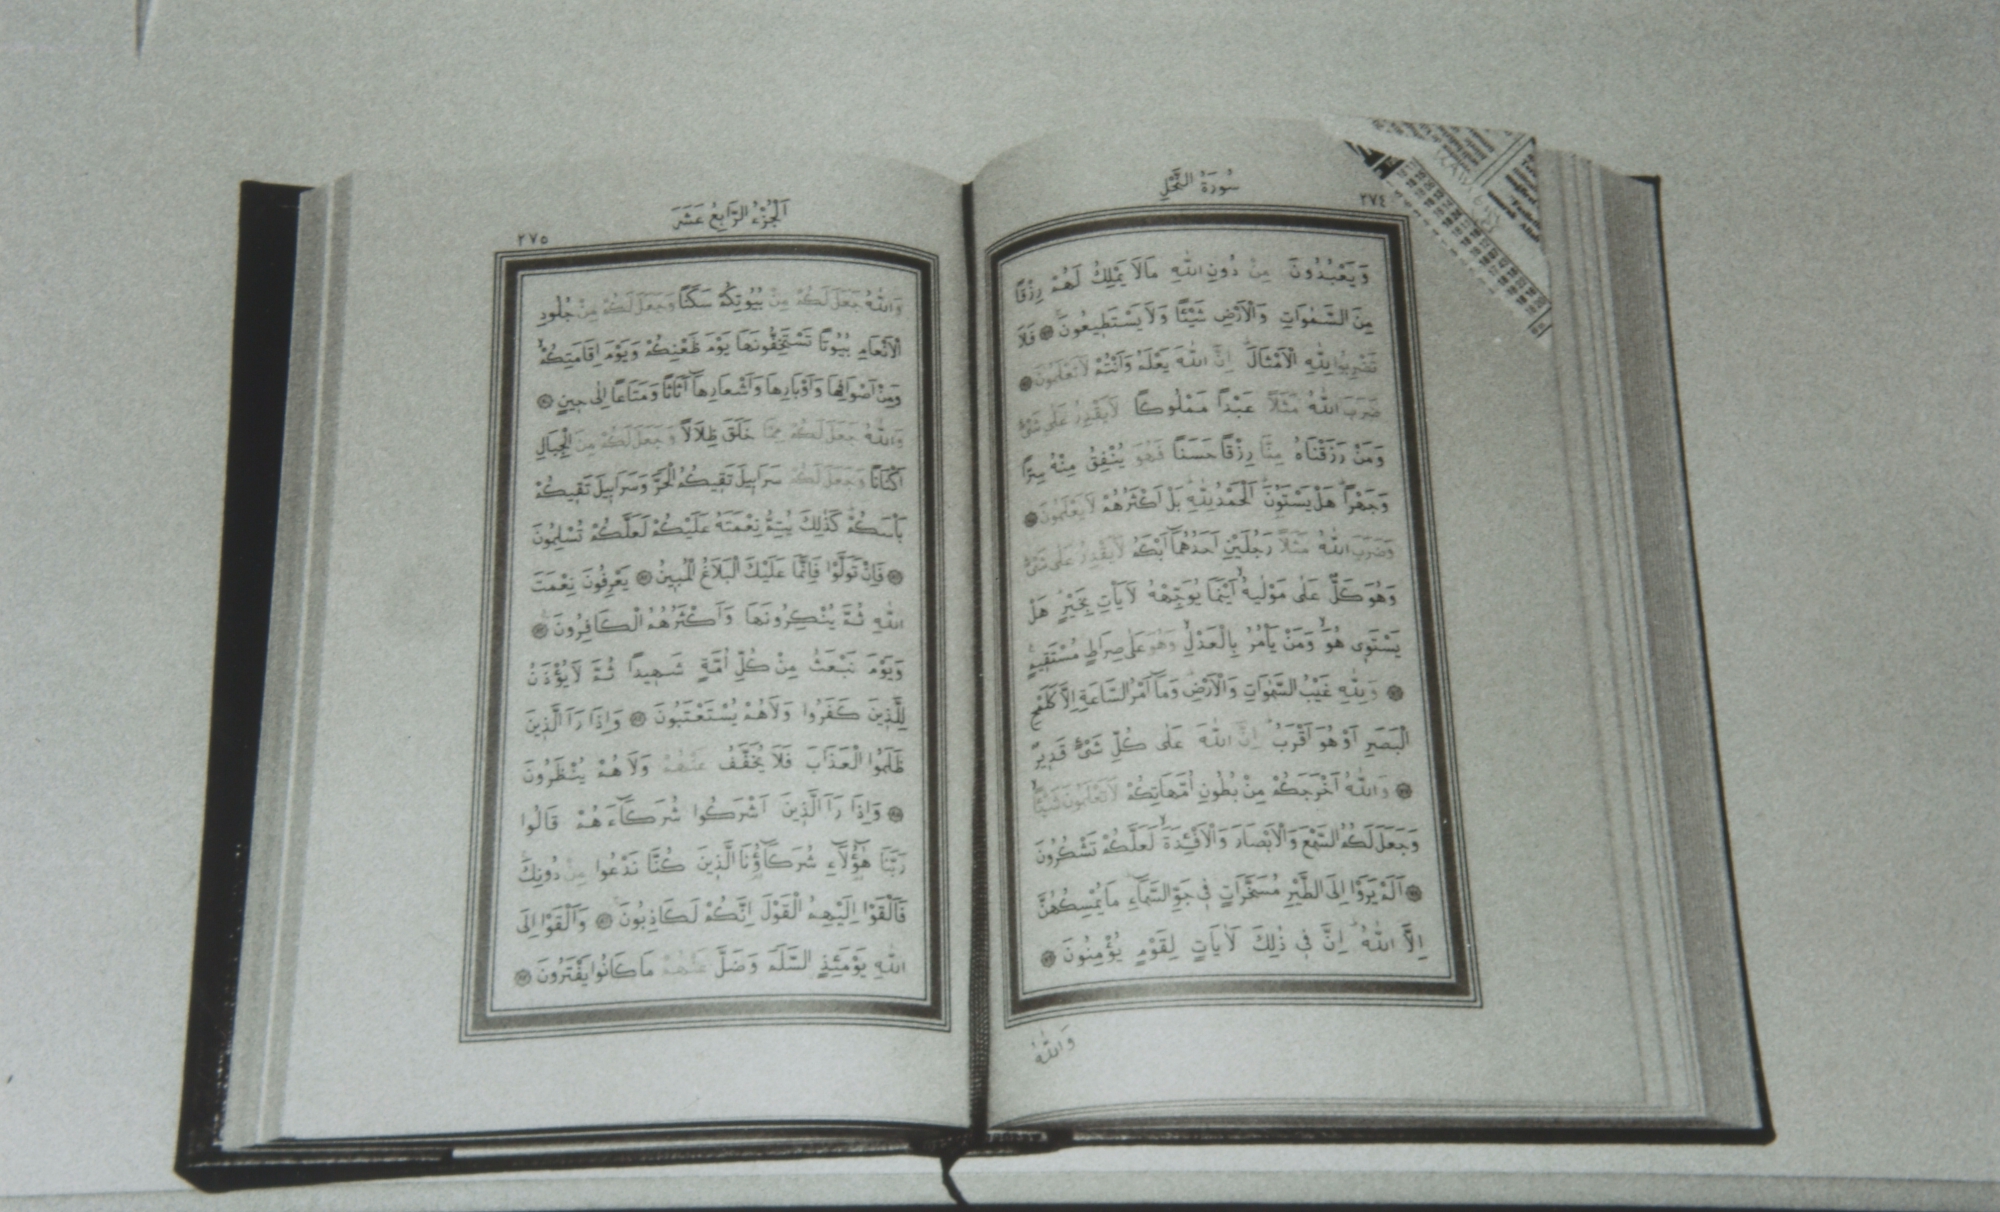 سُورَةُ النَّحْلِ
٢٧٤
وَيَعْبُدُونَ مِنْ دُونِ اللّٰهِ مَا لَا يَمْلِكُ لَهُمْ رِزْقًا
مِنَ السَّمٰوَاتِ وَالْاَرْضِ شَيْئًا وَلَا يَسْتَطِيعُونَ ۞ فَلَا
تَضْرِبُوا لِلّٰهِ الْاَمْثَالَ اِنَّ اللّٰهَ يَعْلَمُ وَاَنْتُمْ لَا تَعْلَمُونَ ۞
ضَرَبَ اللّٰهُ مَثَلًا عَبْدًا مَمْلُوكًا لَا يَقْدِرُ عَلٰى شَيْءٍ
وَمَنْ رَزَقْنَاهُ مِنَّا رِزْقًا حَسَنًا فَهُوَ يُنْفِقُ مِنْهُ سِرًّا
وَجَهْرًا هَلْ يَسْتَوُنَ اَلْحَمْدُ لِلّٰهِ بَلْ اَكْثَرُهُمْ لَا يَعْلَمُونَ ۞
وَضَرَبَ اللّٰهُ مَثَلًا رَجُلَيْنِ اَحَدُهُمَا اَبْكَمُ لَا يَقْدِرُ عَلٰى شَيْءٍ
وَهُوَ كَلٌّ عَلٰى مَوْلٰيهُ اَيْنَمَا يُوَجِّهْهُ لَا يَاْتِ بِخَيْرٍ هَلْ
يَسْتَوِي هُوَ وَمَنْ يَاْمُرُ بِالْعَدْلِ وَهُوَ عَلٰى صِرَاطٍ مُسْتَقِيمٍ
۞ وَلِلّٰهِ غَيْبُ السَّمٰوَاتِ وَالْاَرْضِ وَمَا اَمْرُ السَّاعَةِ اِلَّا كَلَمْحِ
الْبَصَرِ اَوْ هُوَ اَقْرَبُ اِنَّ اللّٰهَ عَلٰى كُلِّ شَيْءٍ قَدِيرٌ
۞ وَاللّٰهُ اَخْرَجَكُمْ مِنْ بُطُونِ اُمَّهَاتِكُمْ لَا تَعْلَمُونَ شَيْئًا
وَجَعَلَ لَكُمُ السَّمْعَ وَالْاَبْصَارَ وَالْاَفْـِٔدَةَ لَعَلَّكُمْ تَشْكُرُونَ
۞ اَلَمْ يَرَوْا اِلَى الطَّيْرِ مُسَخَّرَاتٍ فِي جَوِّ السَّمَاءِ مَا يُمْسِكُهُنَّ
اِلَّا اللّٰهُ اِنَّ فِي ذٰلِكَ لَاٰيَاتٍ لِقَوْمٍ يُؤْمِنُونَ ۞
وَاللّٰهُ
اَلْجُزْءُ الرَّابِعُ عَشَرَ
٢٧٥
وَاللّٰهُ جَعَلَ لَكُمْ مِنْ بُيُوتِكُمْ سَكَنًا وَجَعَلَ لَكُمْ مِنْ جُلُودِ
الْاَنْعَامِ بُيُوتًا تَسْتَخِفُّونَهَا يَوْمَ ظَعْنِكُمْ وَيَوْمَ اِقَامَتِكُمْ
وَمِنْ اَصْوَافِهَا وَاَوْبَارِهَا وَاَشْعَارِهَا اَثَاثًا وَمَتَاعًا اِلٰى حِينٍ ۞
وَاللّٰهُ جَعَلَ لَكُمْ مِمَّا خَلَقَ ظِلَالًا وَجَعَلَ لَكُمْ مِنَ الْجِبَالِ
اَكْنَانًا وَجَعَلَ لَكُمْ سَرَابِيلَ تَقِيكُمُ الْحَرَّ وَسَرَابِيلَ تَقِيكُمْ
بَاْسَكُمْ كَذٰلِكَ يُتِمُّ نِعْمَتَهُ عَلَيْكُمْ لَعَلَّكُمْ تُسْلِمُونَ
۞ فَاِنْ تَوَلَّوْا فَاِنَّمَا عَلَيْكَ الْبَلَاغُ الْمُبِينُ ۞ يَعْرِفُونَ نِعْمَتَ
اللّٰهِ ثُمَّ يُنْكِرُونَهَا وَاَكْثَرُهُمُ الْكَافِرُونَ ۞
وَيَوْمَ نَبْعَثُ مِنْ كُلِّ اُمَّةٍ شَهِيدًا ثُمَّ لَا يُؤْذَنُ
لِلَّذِينَ كَفَرُوا وَلَا هُمْ يُسْتَعْتَبُونَ ۞ وَاِذَا رَاَ الَّذِينَ
ظَلَمُوا الْعَذَابَ فَلَا يُخَفَّفُ عَنْهُمْ وَلَا هُمْ يُنْظَرُونَ
۞ وَاِذَا رَاَ الَّذِينَ اَشْرَكُوا شُرَكَاءَهُمْ قَالُوا
رَبَّنَا هٰؤُلَاءِ شُرَكَاؤُنَا الَّذِينَ كُنَّا نَدْعُوا مِنْ دُونِكَ
فَاَلْقَوْا اِلَيْهِمُ الْقَوْلَ اِنَّكُمْ لَكَاذِبُونَ ۞ وَاَلْقَوْا اِلَى
اللّٰهِ يَوْمَئِذٍ السَّلَمَ وَضَلَّ عَنْهُمْ مَا كَانُوا يَفْتَرُونَ ۞